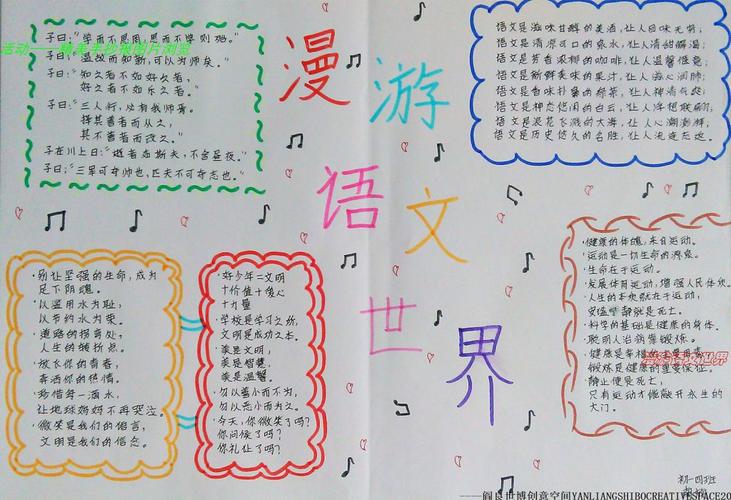 漫游
语文
世界
子曰:"学而不思则罔,思而不学则殆。"
活动——精美手抄报图片浏览
子曰:"温故而知新,可以为师矣。"
子曰:"知之者不如好之者,
好之者不如乐之者。
子曰:"三人行,必有我师焉。
择其善者而从之,
其不善者而改之。"
子在川上曰:"逝者如斯夫,不舍昼夜。"
子曰:"三军可夺帅也,匹夫不可夺志也。"
语文是滋味甘醇的美酒,让人回味无穷;
语文是清凉可口的泉水,让人清甜解渴;
语文是芳香浓郁的咖啡,让人温馨惬意;
语文是新鲜美味的果汁,让人沁心润肺;
语文是香味扑鼻的绿茶,让人神清气爽;
语文是神态悠闲的白云,让人浮想联翩;
语文是浪花飞溅的大海,让人心潮澎湃;
语文是历史悠久的名胜,让人流连忘返。
·别让坚强的生命,成为
足下阴魂。
·以滥用水为耻,
以节约水为荣。
·道路的拐弯处,
人生的转折点。
·放飞你的青春,
挥洒你的热情。
·珍惜每一滴水,
让地球妈妈不再哭泣。
·微笑是我们的语言,
文明是我们的信念。
·好少年=文明
+价值+爱心
+力量
·学校是学习之所,
文明是成功之本。
·美是文明,
美是智慧,
美是温馨。
·勿以善小而不为,
勿以恶小而为之。
·今天,你微笑了吗?
你问候了吗?
你礼让了吗?
·健康的体魄,来自运动。
·运动是一切生命的源泉。
·生命在于运动。
·发展体育运动,增强人民体质。
·人生的本质就在于运动,
安谧宁静就是死亡。
·科学的基础是健康的身体。
·聪明人治病靠锻炼。
·健康是幸福的主要
·锻炼是健康的重要保证。
·静止便是死亡,
只有运动才能敲开永生的
大门。
初一四班
——阎良世博创意空间YANLIANGSHIBOCREATIVESPACE20